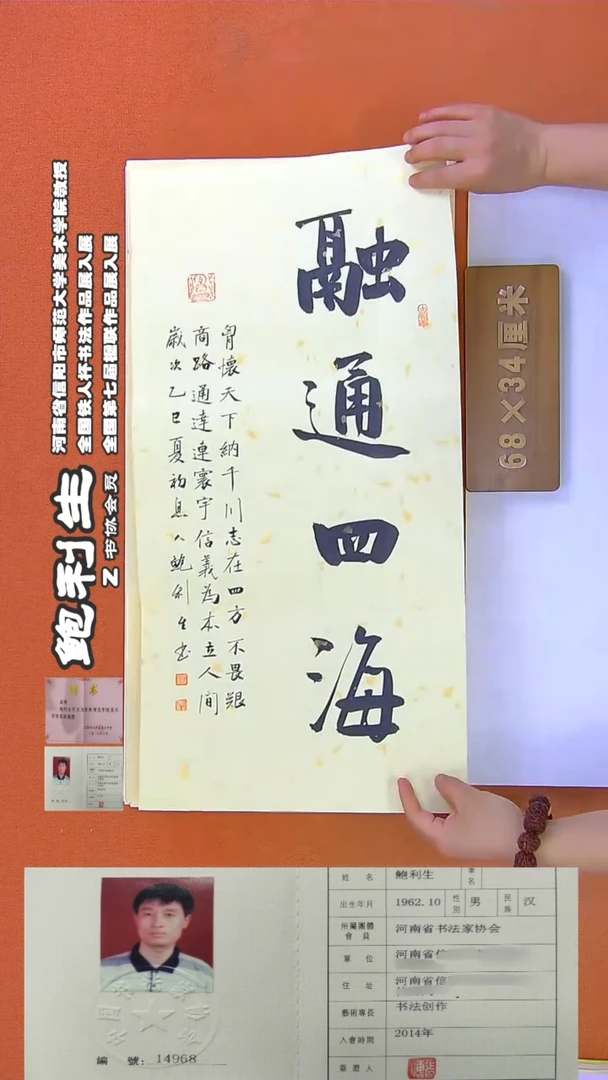 融通四海
胷懷天下納千川志在四方不畏艱
商路通達連寰宇信義為本立人間
歲次乙巳夏初息人鮑利生书
68×34厘米
河南省信阳市师范大学美术学院教授
全国铁人杯书法作品展入展
全国第七届楹联作品展入展
鲍利生
Z书协会员
姓名 鲍利生 筆名
出生年月 1962.10 性別 男 民族 汉
所屬團體會員 河南省书法家协会
單位 河南省信
住址 河南省信
藝術專長 书法创作
入會時間 2014年
簽證人
編號：14968